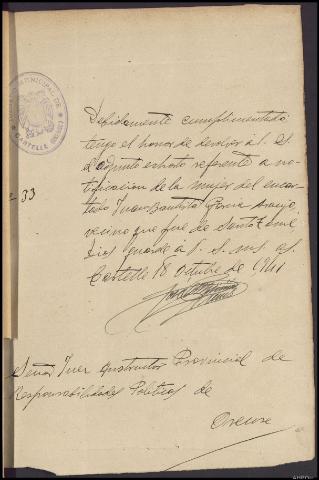 MUNICIPAL DE
CARTELLE
33
Debidamente cumplimentado
tengo el honor de devolver á V. S.
el adjunto exhorto referente a no-
tificacion de la mujer del encar-
tado Juan Bautista Araujo,
vecino que fué de Santa
Dios guarde á V. S. ms. as.
Cartelle 18 octubre de 1941
Señor Juez Instructor Provincial de
Responsabilidades Politicas de
Orense